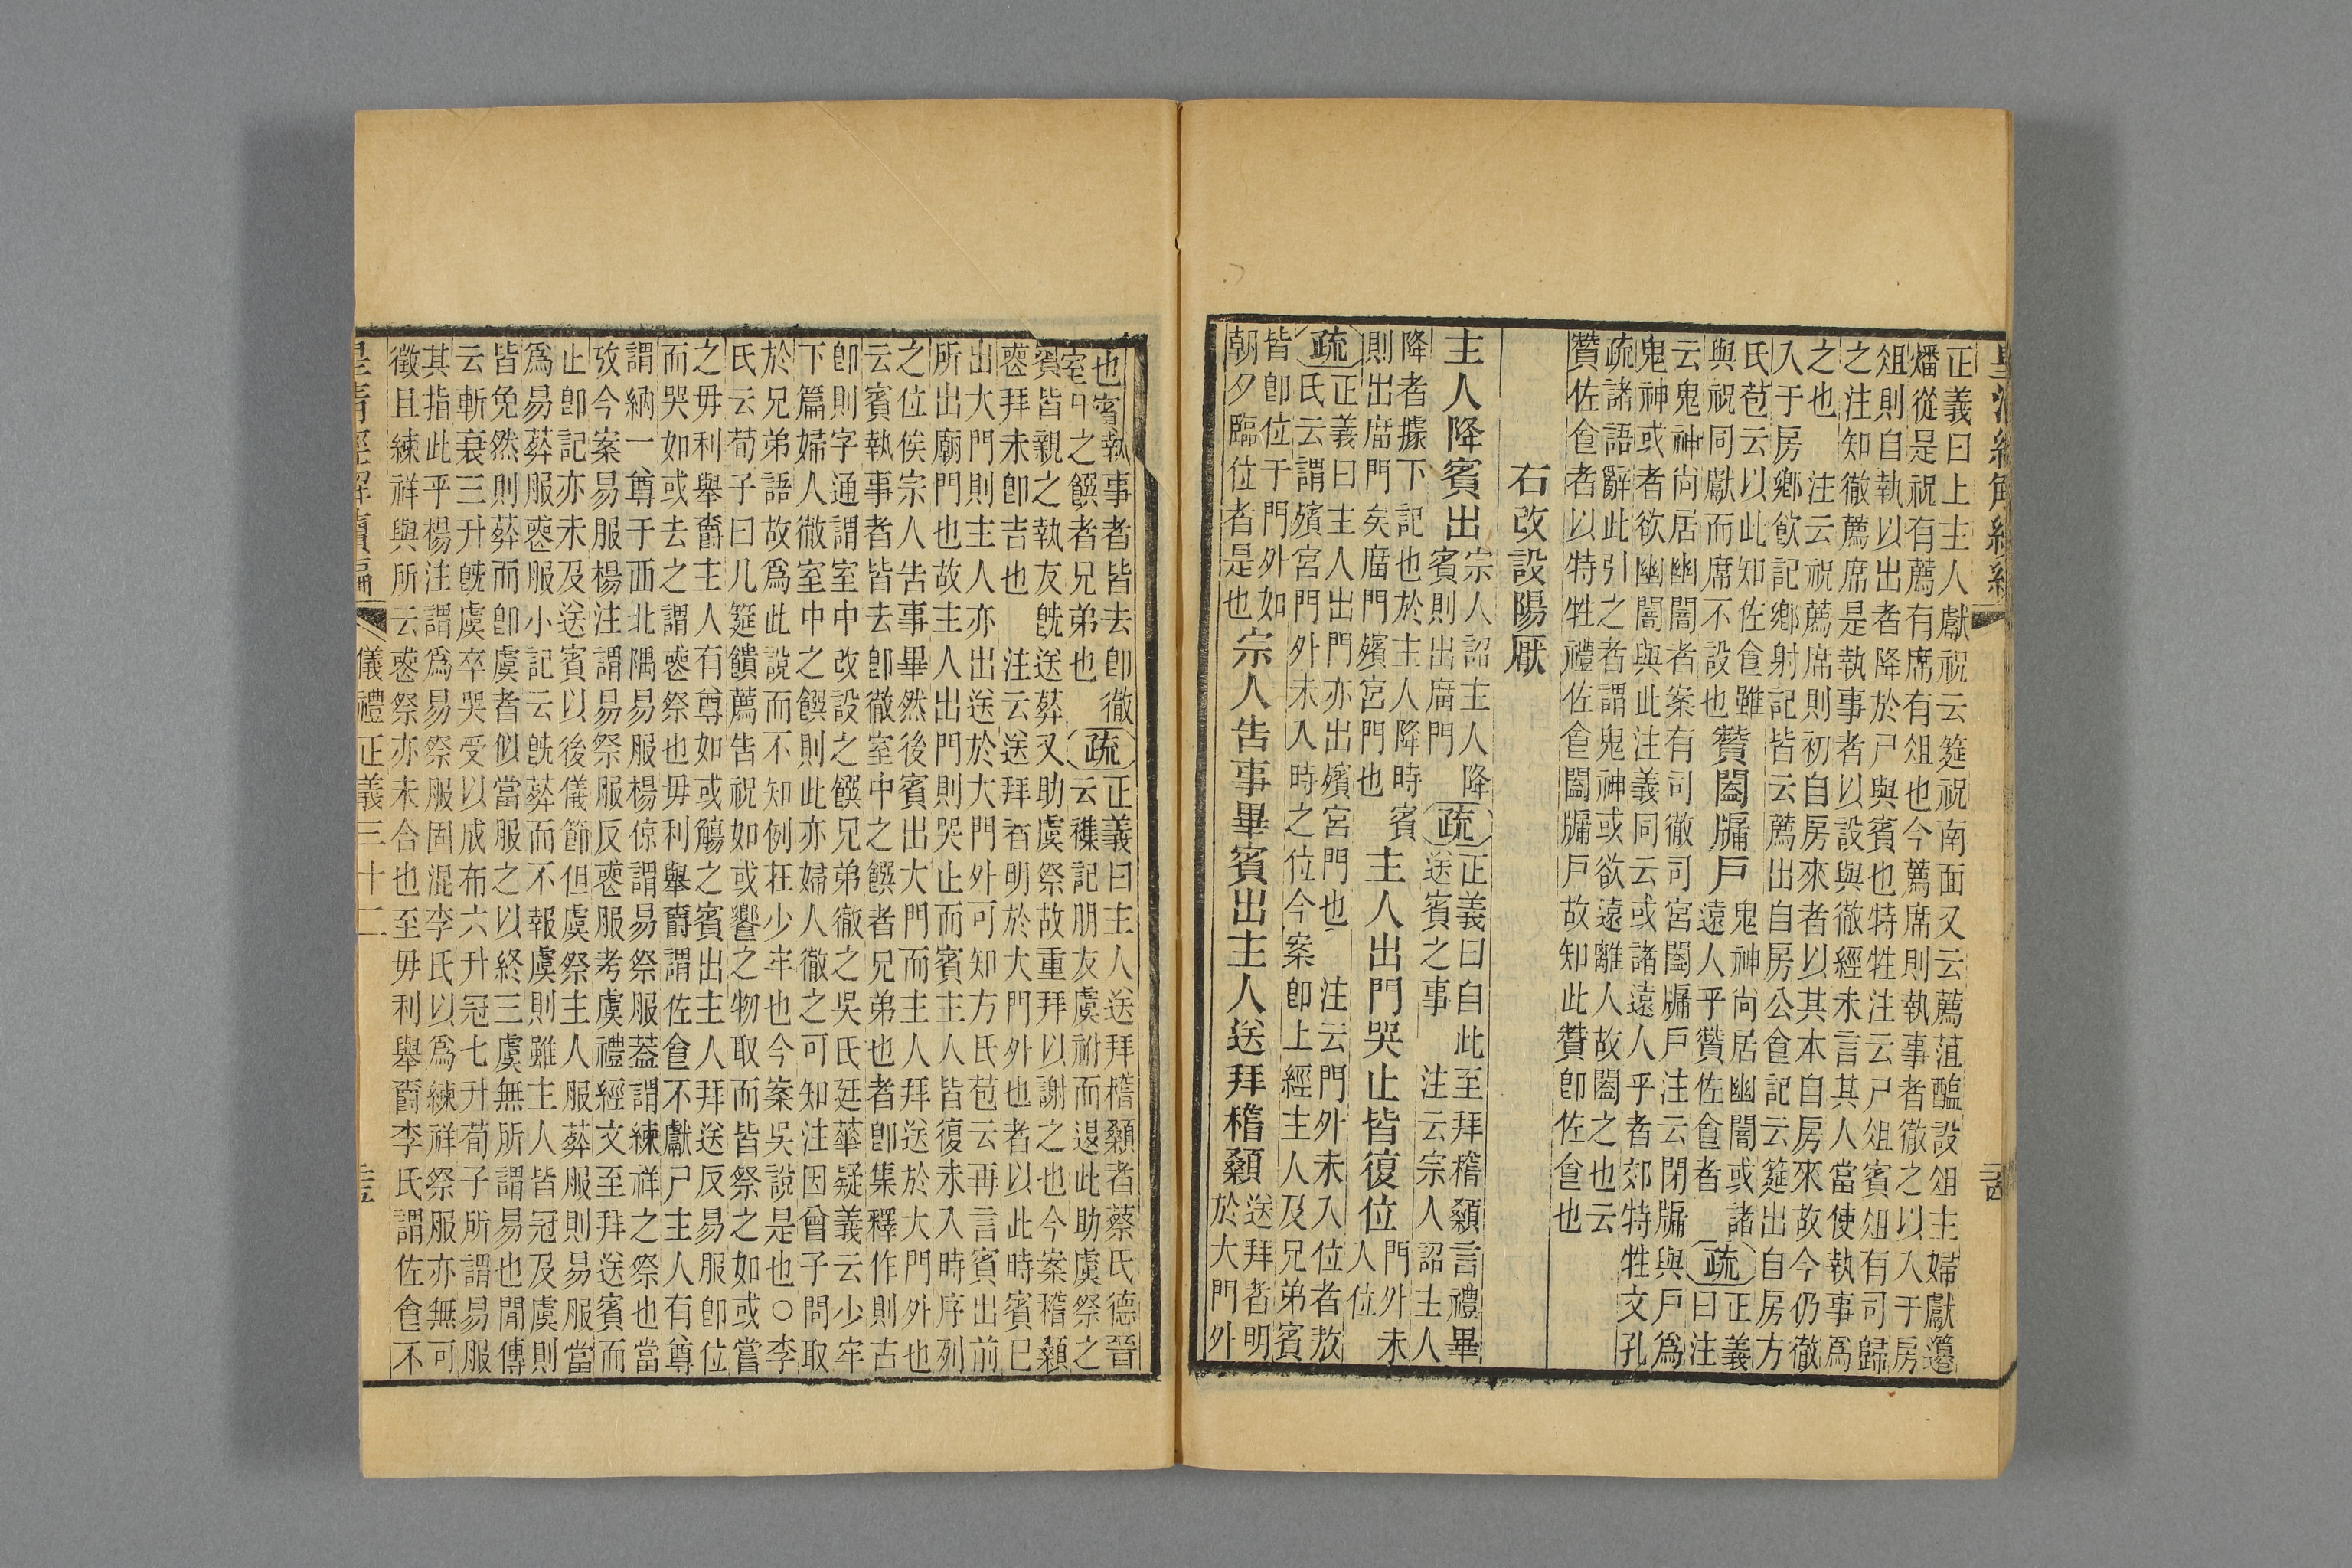 皇清經解續編
正義曰上主人獻祝云筵祝南面又云薦菹醢設俎主婦獻籩
燔從是祝有薦有席有俎也今薦席則執事者徹之以入于房
俎則自執以出者降於尸與賓也特牲注云尸俎賓俎有司歸
之注知徹薦席是執事者以設與徹經未言其人當使執事爲
之也 注云祝薦席則初自房來者以其本自房來故今仍徹
入于房鄉飮記鄉射記皆云薦出自房公食記云筵出自房方
氏苞云以此知佐食雖
與祝同獻而席不設也贊闔牖戶鬼神尚居幽闇或諸
遠人乎贊佐食者疏正義
曰注
云鬼神尚居幽闇者案有司徹司宮闔牖戶注云閉牖與戶爲
鬼神或者欲幽闇與此注義同云或諸遠人乎者郊特牲文孔
疏諸語辭此引之者謂鬼神或欲遠離人故闔之也云
贊佐食者以特牲禮佐食闔牖戶故知此贊卽佐食也
右改設陽厭
主人降賓出宗人詔主人降
賓則出廟門疏正義曰自此至拜稽顙言禮畢
送賓之事 注云宗人詔主人
降者據下記也於主人降時賓
則出廟門矣廟門殯宮門也主人出門哭止皆復位門外未
入位
疏正義曰主人出門亦出殯宮門也 注云門外未入位者敖
氏云謂殯宮門外未入時之位今案卽上經主人及兄弟賓
皆卽位于門外如
朝夕臨位者是也宗人告事畢賓出主人送拜稽顙送拜者明
於大門外
也賓執事者皆去卽徹
室中之饌者兄弟也疏正義曰主人送拜稽顙者蔡氏德晉
云襍記朋友虞祔而退此助虞祭之
賓皆親之執友旣送葬又助虞祭故重拜以謝之也今案稽顙
喪拜未卽吉也 注云送拜者明於大門外也者以此時賓已
出大門則主人亦出送於大門外可知方氏苞云再言賓出前
所出廟門也故主人出門則哭止而賓主人皆復未入時序列
之位俟宗人告事畢然後賓出大門而主人拜送於大門外也
云賓執事者皆去卽徹室中之饌者兄弟也者卽集釋作則古
卽則字通謂室中改設之饌兄弟徹之吳氏廷華疑義云少牢
下篇婦人徹室中之饌則此亦婦人徹之可知注因曾子問取
於兄弟語故爲此說而不知例在少牢也今案吳說是也○李
氏云荀子曰几筵饋薦告祝如或饗之物取而皆祭之如或嘗
之毋利舉爵主人有尊如或觴之賓出主人拜送反易服卽位
而哭如或去之謂喪祭也毋利舉爵謂佐食不獻尸主人有尊
謂納一尊于西北隅易服楊倞謂易祭服蓋謂練祥之祭也當
攷今案易服楊注謂易祭服反喪服考虞禮經文至拜送賓而
止卽記亦未及送賓以後儀節但虞祭主人服葬服則易服當
爲易葬服喪服小記云旣葬而不報虞則雖主人皆冠及虞則
皆免然則葬而卽虞者似當服之以終三虞無所謂易也閒傳
云斬衰三升旣虞卒哭受以成布六升冠七升荀子所謂易服
其指此乎楊注謂爲易祭服固混李氏以爲練祥祭服亦無可
徵且練祥與所云喪祭亦未合也至毋利舉爵李氏謂佐食不
皇清經解續編 儀禮正義三十二